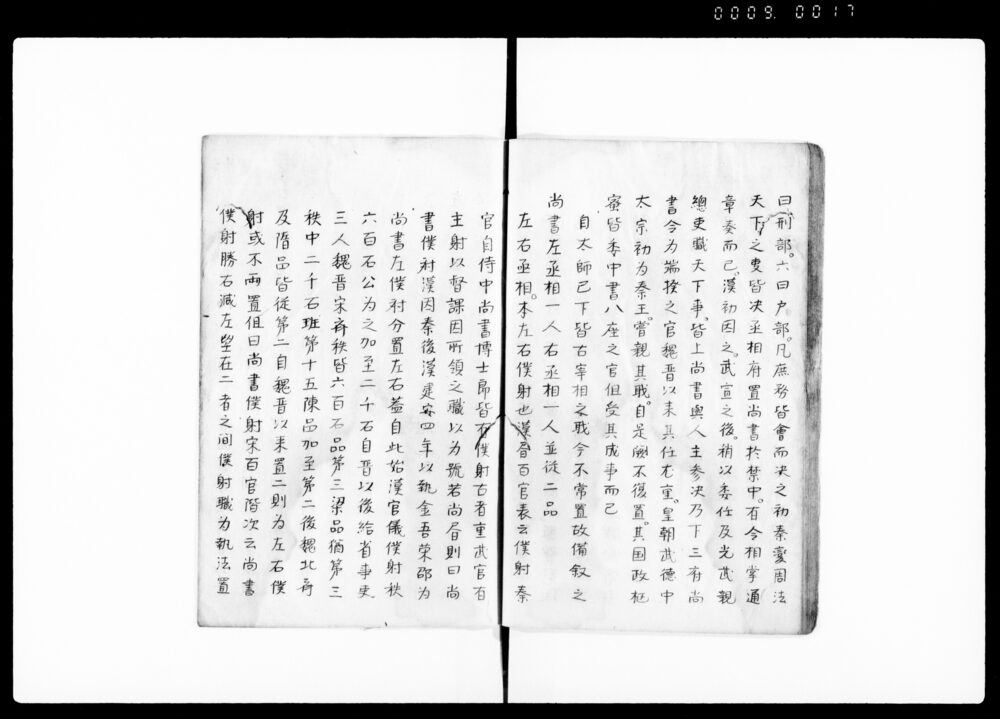 0009. 0017
曰刑部。六曰户部。凡庶務皆會而决之初秦變周法
天下之事皆决丞相府置尚書於禁中。有令相掌通
章奏而已。漢初因之。武宣之後。稍以委任及光武親
總吏職天下事。皆上尚書與人主参决乃下三府尚
書令為端揆之官魏晋以来其任尤重。皇朝武德中
太宗初為秦王。嘗親其職。自是闕不復置。其国政枢
密皆委中書八座之官但受其成事而已
自太師已下皆古宰相之職今不常置故備叙之
尚書左丞相一人右丞相一人並従二品
左右丞相。本左右僕射也漢書百官表云僕射秦
官自侍中尚書博士郎皆有僕射古者重武官百
主射以督課因所領之職以為號若尚書則曰尚
書僕射漢因秦後漢建安四年以執金吾荣郃為
尚書左僕射分置左右蓋自此始漢官儀僕射秩
六百石公為之加至二千石自晋以後給省事吏
三人魏晋宋齐秩皆六百石品第三梁品猶第三
秩中二千石班第十五陳品加至第二後魏北齐
及隋品皆従第二自魏晋以来置二則為左右僕
射或不兩置但曰尚書僕射宋百官階次云尚書
僕射勝右减左望在二者之间僕射職為執法置